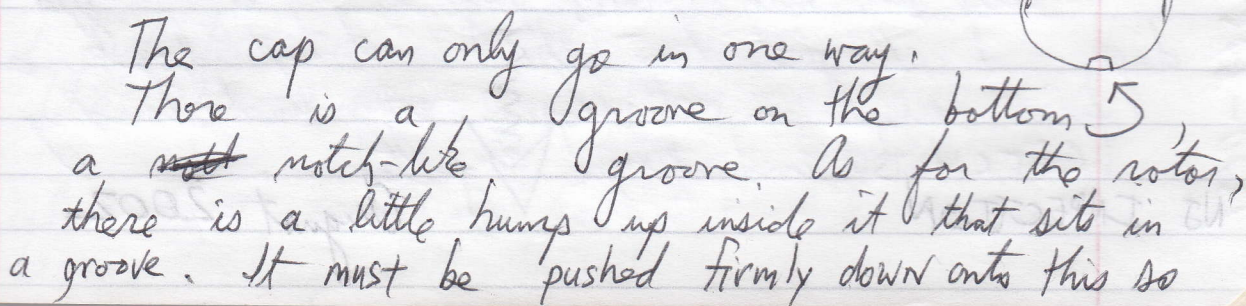 The cap can only go in one way.
There is a groove on the bottom 5,
a notch-like groove. As for the rotor,
there is a little hump up inside it that sits in
a groove. It must be pushed firmly down onto this so